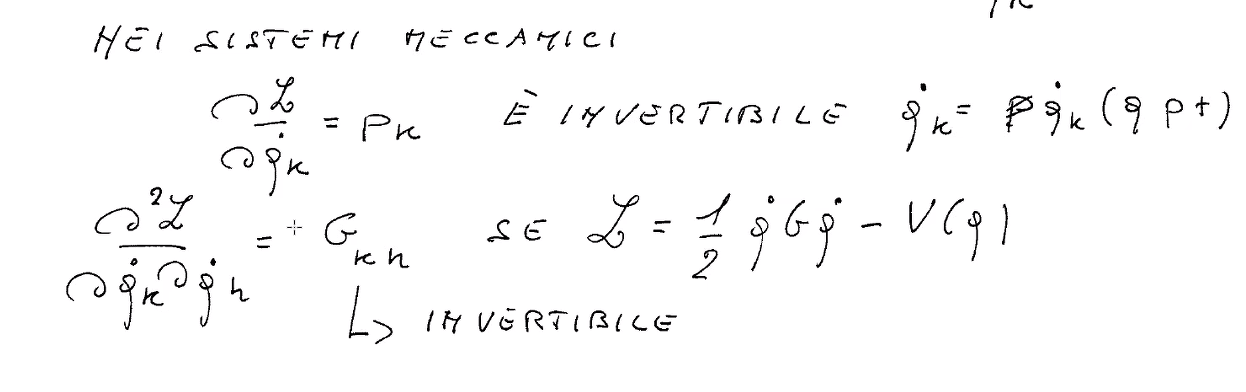 NEI SISTEMI MECCANICI
∂ℒ/∂q̇ₖ = pₖ È INVERTIBILE q̇ₖ = q̇ₖ (q p t)
∂²ℒ/∂q̇ₖ∂q̇ₕ = + Gₖₕ SE ℒ = 1/2 q̇ G q̇ - V(q)
↳ INVERTIBILE